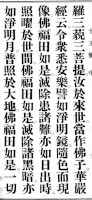 羅三藐三菩提汝於來世當作佛子華嚴
經云令眾悉安樂譬如淨明鏡隨色而現
像佛福田如是滅除患諸難亦如日出時
照曜於世間佛福田如是滅除諸黑暗亦
如淨明月普照於大地佛福田如是一切